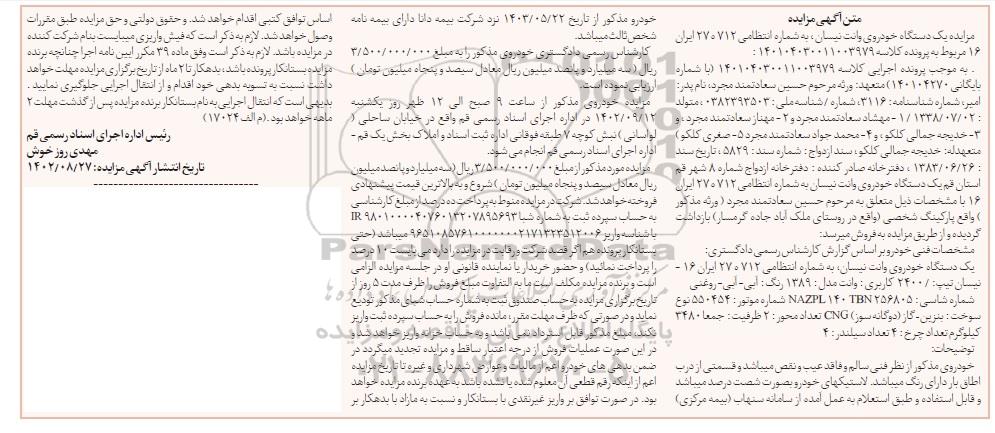 متن آگهی مزایده
مزایده یک دستگاه خودروی وانت نیسان، به شماره انتظامی ۷۱۲ه۲۷ ایران
۱۶ مربوط به پرونده کلاسه ۱۴۰۱۰۴۰۳۰۰۱۱۰۰۳۹۷۹ :
. به موجب پرونده اجرایی کلاسه ۱۴۰۱۰۴۰۳۰۰۱۱۰۰۳۹۷۹ (با شماره
بایگانی ۱۴۰۱۰۴۲۷۰) متعهد: ورثه مرحوم حسین سعادتمند مجرد، نام پدر:
امیر، شماره شناسنامه: ۳۱۱۶، شماره /شناسه ملی: ۰۳۸۲۳۹۳۵۰۳، متولد
: ۱۳۳۸/۰۷/۰۲ /۱- مهشاد سعادتمند مجرد و ۲- مهناز سعادتمند مجرد، و
۳-خدیجه جمالی کلکو، و ۴- محمد جواد سعادتمند مجرد ۵- صغری کلکو)
متعهدله: خدیجه جمالی کلکو، سند ازدواج: شماره سند: ۵۸۲۹، تاریخ سند
: ۱۳۸۳/۰۶/۲۶، دفترخانه صادر کننده : دفترخانه ازدواج شماره ۸ شهر قم
استان قم یک دستگاه خودروی وانت نیسان به شماره انتظامی ۷۱۲ه۲۷ ایران
۱۶ با مشخصات ذیل متعلق به مرحوم حسین سعادتمند مجرد ( ورثه مذکور
) واقع پارکینگ شخصی (واقع در روستای ملک آباد جاده گرمسار) بازداشت
گردیده و از طریق مزایده به فروش میرسد:
مشخصات فنی خودرو بر اساس گزارش کارشناس رسمی دادگستری:
یک دستگاه خودروی وانت نیسان، به شماره انتظامی ۷۱۲ه ۲۷ ایران ۱۶ -
نیسان تیپ: / ۲۴۰۰ کاربری: وانت مدل: ۱۳۸۹ رنگ: آبی-آبی-روغنی
شماره شاسی: NAZPL ۱۴۰ TBN ۲۵۶۸۰۵ شماره موتور: ۵۵۰۴۵۴ نوع
سوخت: بنزین-گاز (دوگانه سوز) CNG تعداد محور : ۲ ظرفیت: جمعا ۳۴۸۰
کیلوگرم تعداد چرخ: ۴ تعداد سیلندر : ۴
توضیحات:
خودروی مذکور از نظر فنی سالم و فاقد عیب و نقص میباشد و قسمتی از درب
اطاق بار دارای رنگ میباشد. لاستیکهای خودرو بصورت شصت درصد میباشد
و قابل استفاده و طبق استعلام به عمل آمده از سامانه سنهاب (بیمه مرکزی)
خودرو مذکور از تاریخ ۱۴۰۳/۰۵/۲۲ نزد شرکت بیمه دانا دارای بیمه نامه
شخص ثالث میباشد.
کارشناس رسمی دادگستری خودروی مذکور را به مبلغ ۳/۵۰۰/۰۰۰/۰۰۰
ریال ( سه میلیارد و پانصد میلیون ریال معادل سیصد و پنجاه میلیون تومان )
ارزیابی نموده است.
مزایده خودروی مذکور از ساعت ۹ صبح الی ۱۲ ظهر روز یکشنبه
۱۴۰۲/۰۹/۱۲ در اداره اجرای اسناد رسمی قم واقع در خیابان ساحلی (
لواسانی) نبش کوچه ۷ طبقه فوقانی اداره ثبت اسناد و املاک بخش یک قم -
اداره اجرای اسناد رسمی قم انجام می شود.
مزایده مورد مذکور از مبلغ ۳/۵۰۰/۰۰۰/۰۰۰ ریال (سه میلیارد و پانصد میلیون
ریال معادل سیصد و پنجاه میلیون تومان) شروع و به بالاترین قیمت پیشنهادی
فروخته خواهد شد. شرکت در مزایده منوط به پرداخت ده درصد از مبلغ کارشناسی
به حساب سپرده ثبت به شماره شبا IR ۹۸۰۱۰۰۰۰۴۰۷۶۰۱۳۲۰۷۸۹۵۶۹۳
با شناسه واریز ۹۶۵۱۰۸۵۷۶۱۰۰۰۰۰۰۰۲۱۷۱۳۲۳۵۱۲۰۰۶ میباشد (حتی
بستانکار پرونده هم اگر قصد شرکت و رقابت در مزایده را دارد می بایست ۱۰ درصد
را پرداخت نمائید) و حضور خریدار یا نماینده قانونی او در جلسه مزایده الزامی
است و برنده مزایده مکلف است ما به التفاوت مبلغ فروش را ظرف مدت ۵ روز از
تاریخ برگزاری مزایده به حساب صندوق ثبت به شماره حساب شبای مذکور تودیع
نماید و در صورتی که ظرف مهلت مقرر، مانده فروش را به حساب سپرده ثبت واریز
نکند، مبلغ مذکور قابل استرداد نمی باشد و به حساب خزانه واریز خواهد شد و
در این صورت عملیات فروش از درجه اعتبار ساقط و مزایده تجدید میگردد در
ضمن بدهی های خودرو اعم از مالیات و عوارض شهرداری و غیره تا تاریخ مزایده
اعم از اینکه رقم قطعی آن معلوم شده یا نشده باشد به عهده برنده مزایده خواهد
بود. در صورت توافق بر واریز غیرنقدی با بستانکار و نسبت به مازاد با بدهکار بر
اساس توافق کتبی اقدام خواهد شد. و حقوق دولتی و حق مزایده طبق مقررات
وصول خواهد شد. لازم به ذکر است که فیش واریزی میبایست بنام شرکت کننده
در مزایده باشد. لازم به ذکر است وفق ماده ۳۹ مکرر آیین نامه اجرا چنانچه برنده
مزایده بستانکار پرونده باشد، بدهکار تا ۲ ماه از تاریخ برگزاری مزایده مهلت خواهد
داشت نسبت به تسویه بدهی خود اقدام و از انتقال اجرایی جلوگیری نمایید .
بدیهی است که انتقال اجرایی به نام بستانکار برنده مزایده پس از گذشت مهلت ۲
ماهه خواهد بود. (م الف ۱۷۰۲۴)
رئیس اداره اجرای اسناد رسمی قم
مهدی روز خوش
تاریخ انتشار آگهی مزایده: ۱۴۰۲/۰۸/۲۷